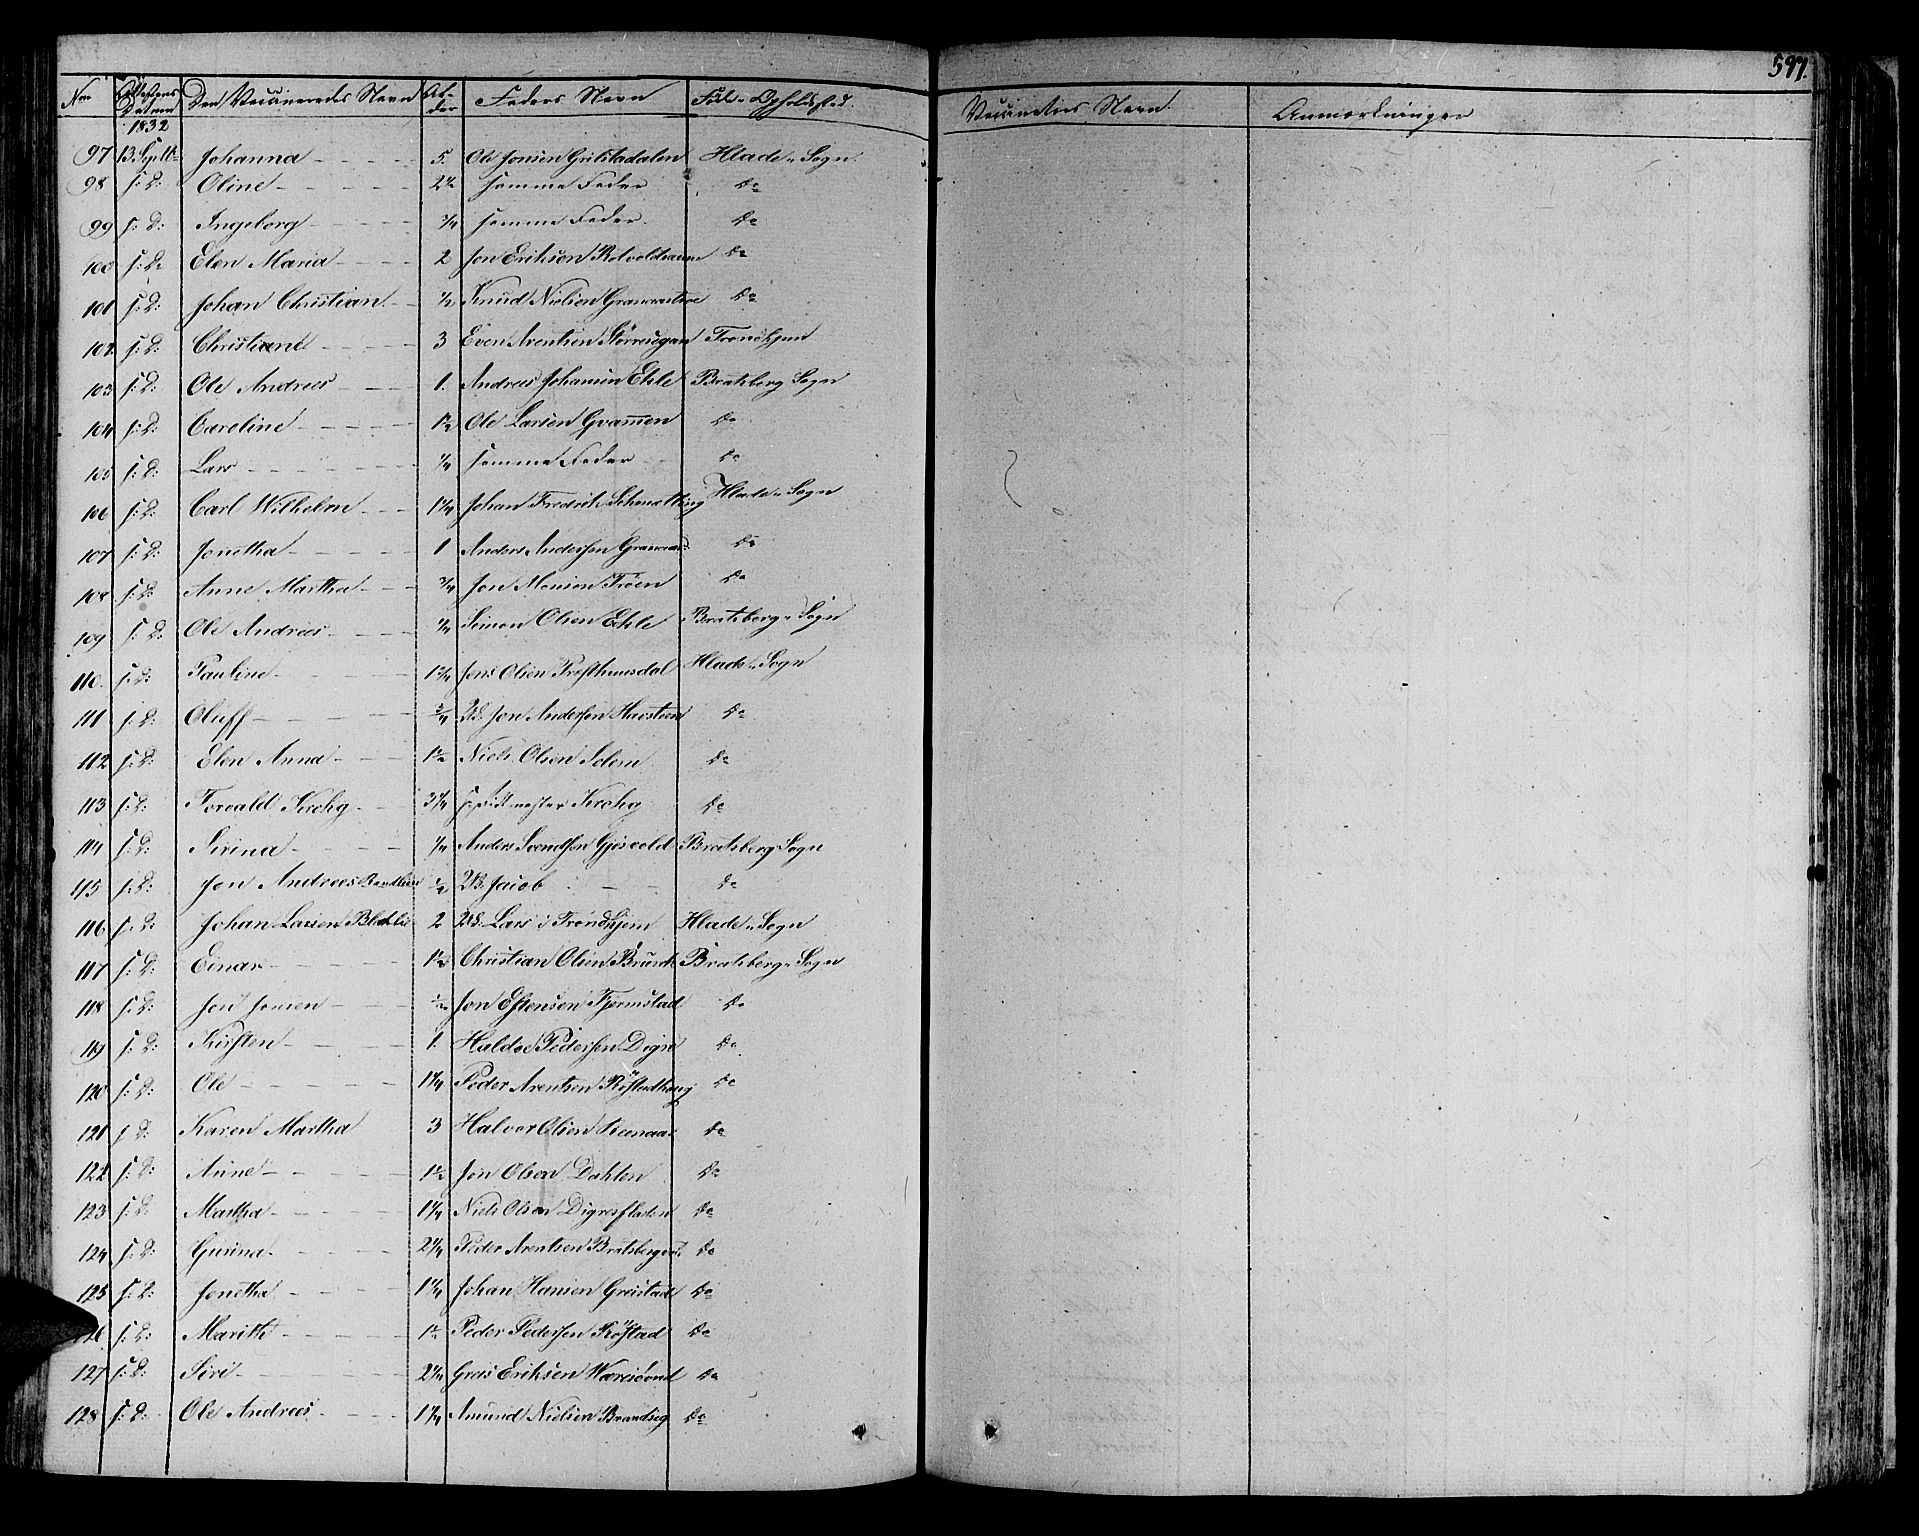 597.
Nro Attestens Datum Den Vaccineredes Navn Alder Faders Navn Føde- Opholdssted. Vaccinators Navn. Anmærkninger
1832
97 13 Septbr Johanna 5. Ole Jonsen Grilstadalen Hlade Sogn.
98 s: D: Oline 2½ samme Fader do
99 s: D: Ingeborg ¾ samme Fader. do
100 s: D: Elen Maria 2 Jon Eriksen do
101 s: D: Johan Christian ½ Knud Nielsen do
102 s: D: Christiane 3 Even Arentsen Trondhjem
103 s: D: Ole Andreas 1. Andreas Johansen Ehle Bratsberg Sogn
104 s: D: Careline 1½ Ole Larsen Gvammen do
105 s: D: Lars ¼ samme Fader do
106 s: D: Carl Wilhelm 1¼ Johan Fredrik Schmetting Hlade Sogn
107 s: D: Jonetha 1 Anders Andersen do
108 s: D: Anne Martha ¾ Jon Monsen Trøen do
109 s: D: Ole Andreas ¼ Simon Olsen Ehle Bratsberg Sogn
110. s: D: Pauline 1¾ Jens Olsen Presthuusdal Hlade Sogn
111 s: D: Oluff ¾ Jon Andersen Havstein do
112 s: D: Elen Anna 1½ Niels Olsen do
113 s: D: Torvald Krohg 3¼ Krohg do
114 s: D: Sirina ¼ Anders Svendsen Gjøsvold Bratsberg Sogn
115 s: D: Jon Andreas ½ Jacob do
116 s: D: Johan Larsen 2 Lars i Trondhjem Hlade Sogn
117 s: D: Einar 1½ Christian Olsen Brurok Bratsberg Sogn
118 s: D: Jon Jonsen ½ Jon Estensen Tjermstad do
119 s: D: Kirsten 1. Haldo Pedersen Digre do
120 s: D: Ole 1¼ Peder Arentsen Røstadhoug do
121 s: D: Karen Martha 3 Halvor Olsen do
122 s: D: Anne 1½ Jon Olsen Dahlen do
123 s: D: Martha 1¼ Niels Olsen Digresfladen do
124 s: D: Gurina 2¼ Peder Arentsen do
125 s: D: Jonetha 1¼ Johan Hansen Greistad do
126 s: D: Marith 1½ Peder Pedersen Røstad do
127 s: D: Siri 2¼ Eriksen do
128 s: D: Ole Andreas 1¼ Amund Nielsen Brandseg do